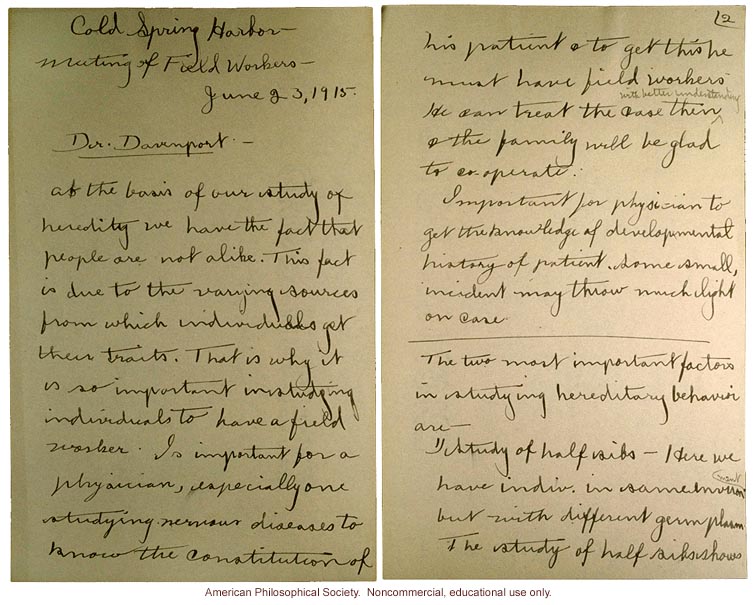 Cold Spring Harbor—
Meeting of Field Workers—
June 23, 1915.
Dr. Davenport.—
at the basis of our study of
heredity we have the fact that
people are not alike. This fact
is due to the varying sources
from which individuals get
their traits. That is why it
is so important in studying
individuals to have a field
worker. Is important for a
physician, especially one
studying nervous diseases to
know the constitution of
2
his patient & to get this he
must have field workers
with better understanding
He can treat the case then
& the family will be glad
to co-operate.
Important for physician to
get the knowledge of developmental
history of patient. Some small,
incident may throw much light
on case
The two most important factors
in studying hereditary behavior
are—
1) Study of half sibs — Here we
have indiv. in same environ
ment
but with different germ plasm
The study of half sibs shows
American Philosophical Society. Noncommercial, educational use only.